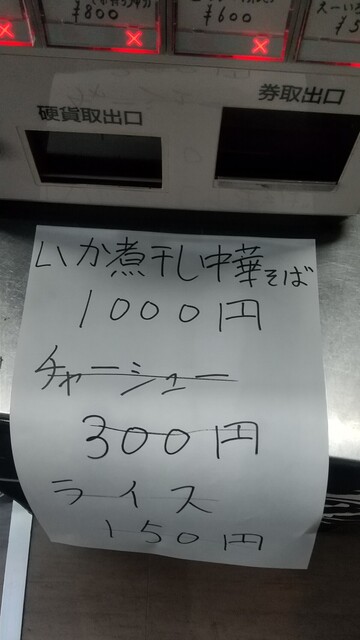 ¥800
¥600
硬貨取出口
券取出口
いか煮干し中華そば
1000円
チャーシュー
300円
ライス
150円